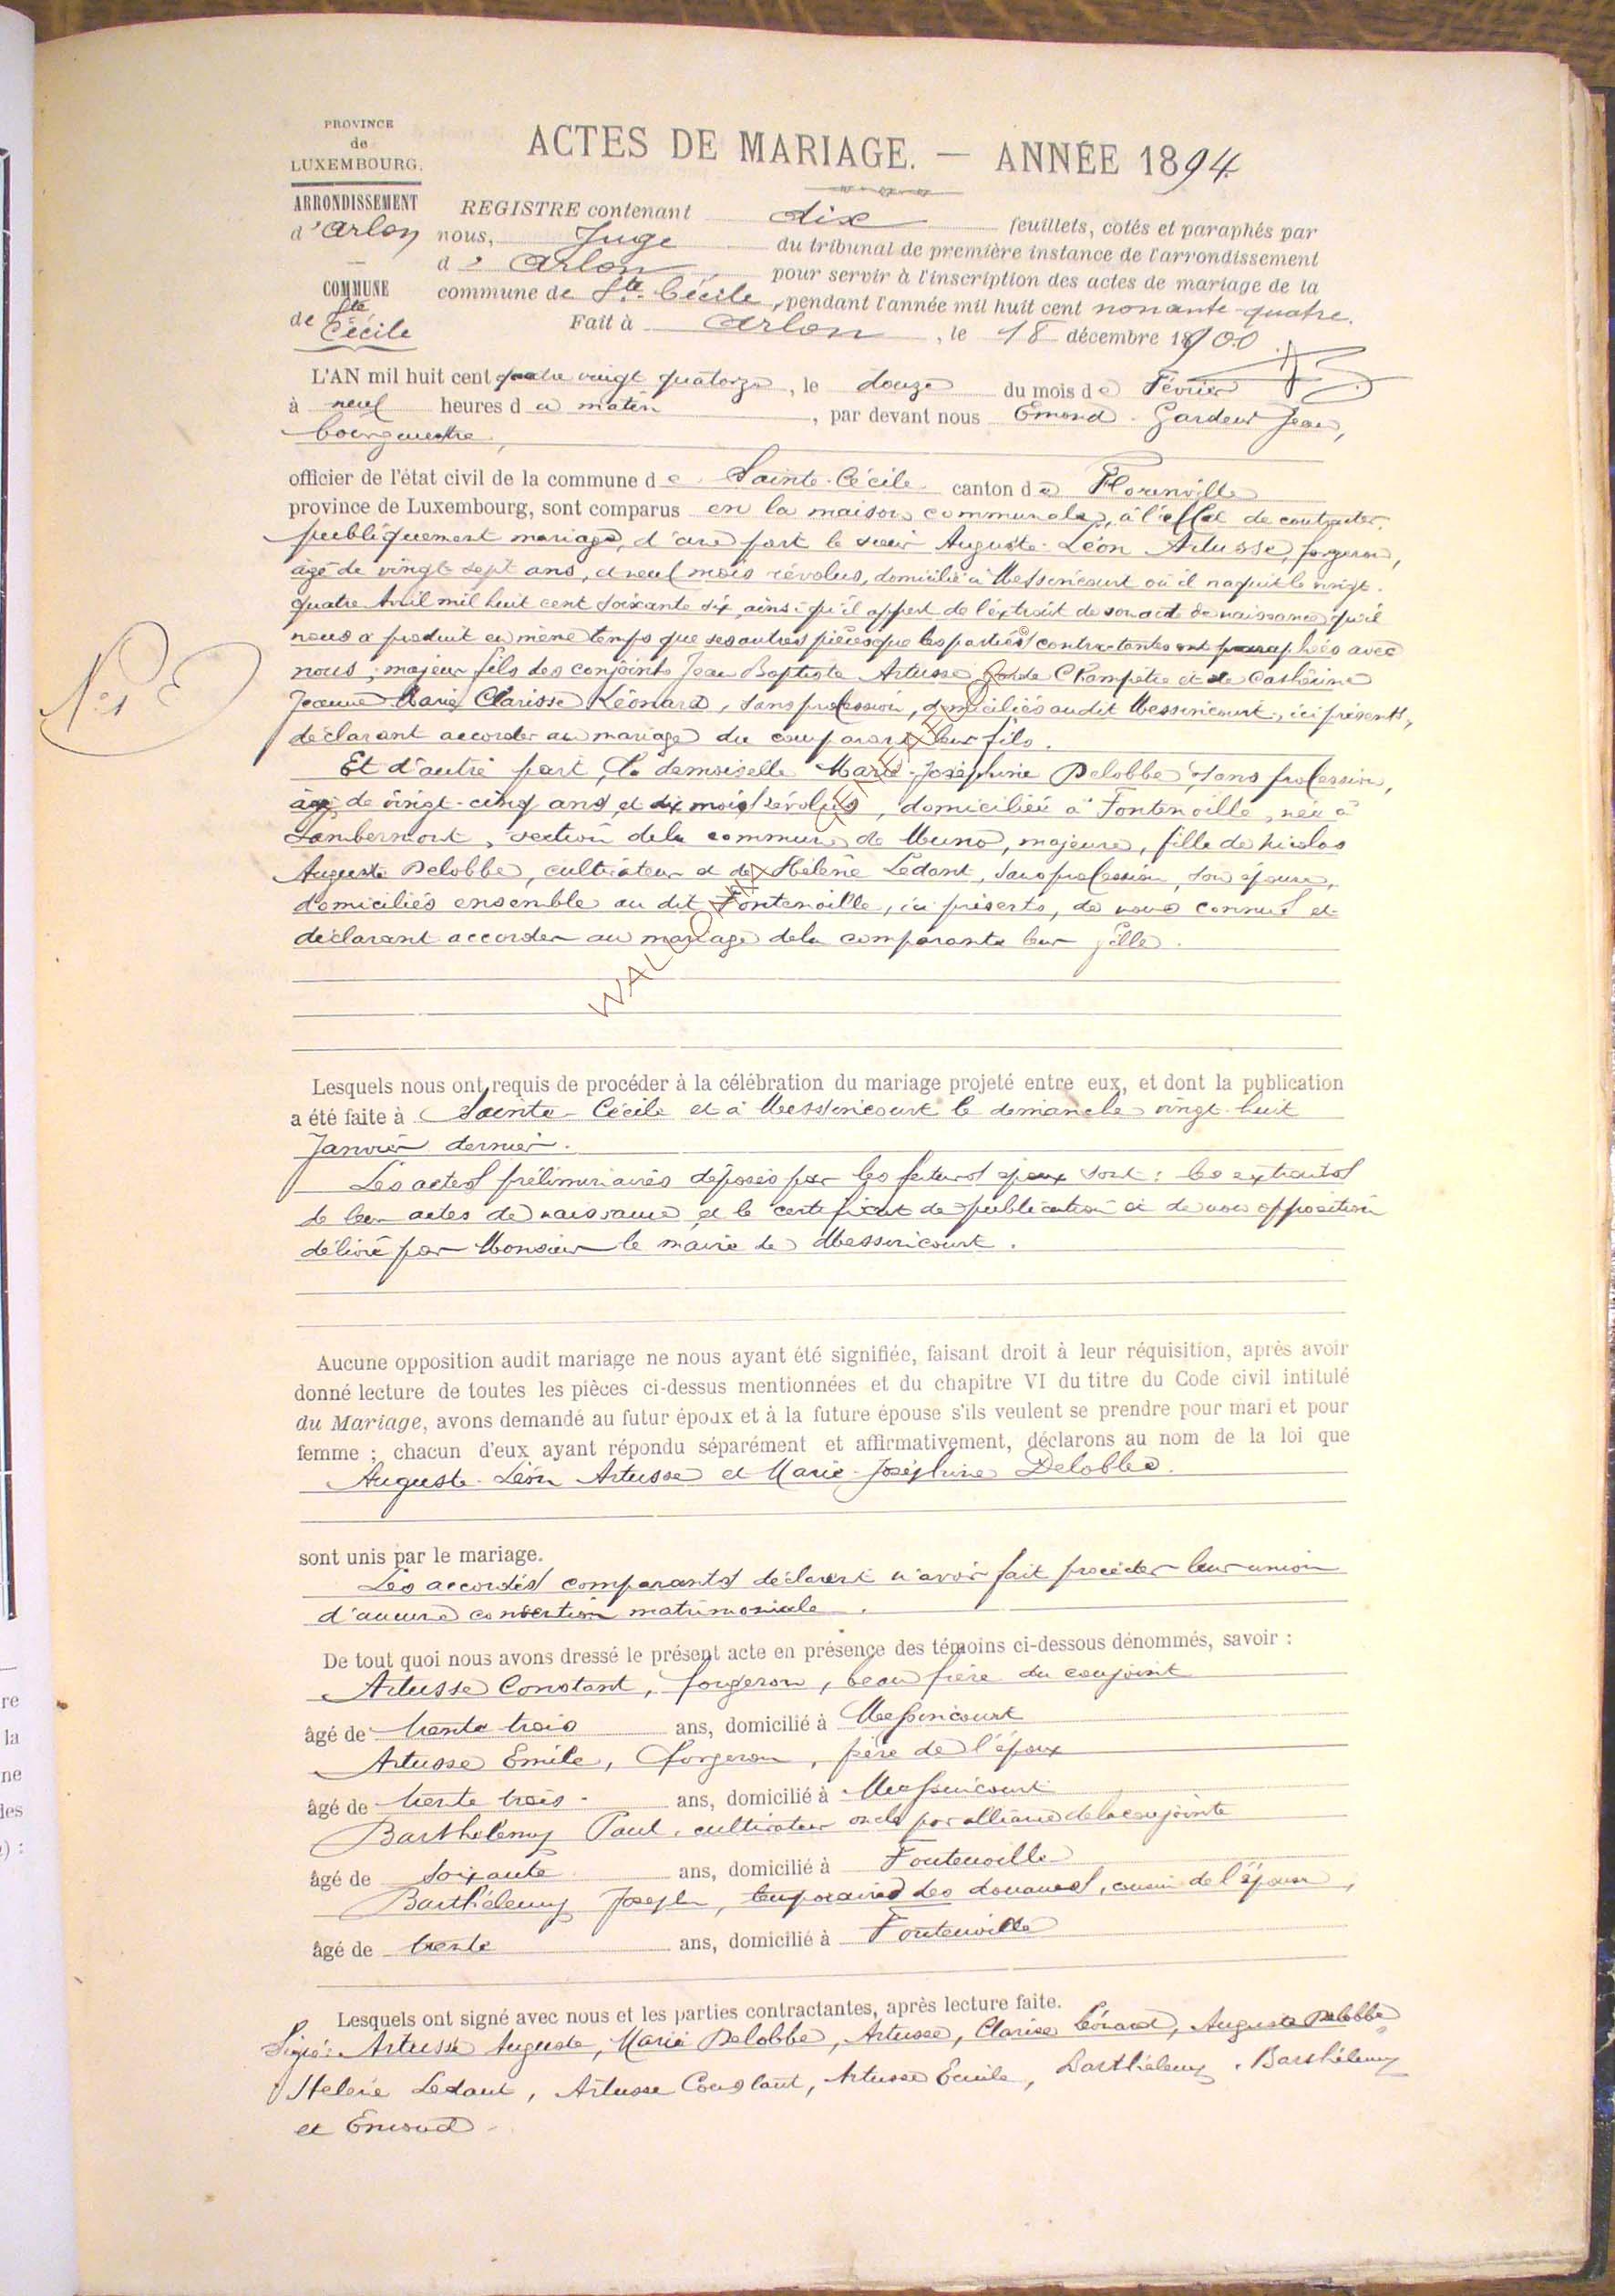 PROVINCE
de
LUXEMBOURG.
ARRONDISSEMENT
d'Arlon
COMMUNE
de Ste
Cécile
ACTES DE MARIAGE. — ANNÉE 1894
REGISTRE contenant dix feuillets, cotés et paraphés par
nous, Juge du tribunal de première instance de l'arrondissement
d'Arlon pour servir à l'inscription des actes de mariage de la
commune de Ste. Cécile, pendant l'année mil huit cent nonante-quatre.
Fait à Arlon, le 18 décembre
N° 1
L'AN mil huit cent quatre vingt quatorze, le douze du mois de Février
à neuf heures du matin, par devant nous Emond-Gardeur Jean,
bourgmestre,
officier de l'état civil de la commune de Sainte-Cécile canton de Florenville
province de Luxembourg, sont comparus en la maison communale, à l'effet de contracter
publiquement mariage, d'une part le sieur Auguste-Léon Artusse, forgeron,
âgé de vingt-sept ans, et neuf mois révolus, domicilié à Messincourt où il naquit le vingt-
quatre Avril mil huit cent soixante six, ainsi qu'il appert de l'extrait de son acte de naissance qu'il
nous a produit en même temps que ses autres pièces que les parties contractantes ont paraphées avec
nous; majeur fils des conjoints Jean Baptiste Artusse, Garde Champêtre et de Cathérine
Jeanne Marie Clarisse Léonard, sans profession, domiciliés audit Messincourt, ici présents,
déclarant accorder au mariage du comparant leur fils.
Et d'autre part, la demoiselle Marie-Joséphine Delobbe, sans profession,
âgé de vingt-cinq ans et dix mois révolus, domiciliée à Fontenoille, née à
Lambermont, section de la commune de Muno, majeure, fille de Nicolas
Auguste Delobbe, cultivateur et de Hélène Ledant, sans profession, son épouse,
domiciliés ensemble au dit Fontenoille, ici présents, de nous connus et
déclarant accorder au mariage de la comparante leur fille.
Lesquels nous ont requis de procéder à la célébration du mariage projeté entre eux, et dont la publication
a été faite à Sainte-Cécile et à Messincourt le dimanche vingt-huit
Janvier dernier.
Les actes préliminaires déposés par les futurs époux sont: les extraits
de leur actes de naissance et le certificat de publication et de non opposition
délivré par Monsieur le maire de Messincourt.
Aucune opposition audit mariage ne nous ayant été signifiée, faisant droit à leur réquisition, après avoir
donné lecture de toutes les pièces ci-dessus mentionnées et du chapitre VI du titre du Code civil intitulé
du Mariage, avons demandé au futur époux et à la future épouse s'ils veulent se prendre pour mari et pour
femme ; chacun d'eux ayant répondu séparément et affirmativement, déclarons au nom de la loi que
Auguste-Léon Artusse et Marie-Joséphine Delobbe.
sont unis par le mariage.
Les accordés comparants déclarent n'avoir fait précéder leur union
d'aucune convention matrimoniale.
De tout quoi nous avons dressé le présent acte en présence des témoins ci-dessous dénommés, savoir :
Artusse Constant, forgeron, beau frère du conjoint
âgé de trente trois ans, domicilié à Messincourt
Artusse Emile, forgeron, frère de l'époux
âgé de trente trois ans, domicilié à Messincourt
Barthélemy Paul, cultivateur oncle par alliance de la conjointe
âgé de soixante ans, domicilié à Fontenoille
Barthélemy Joseph, temporaire des douanes, cousin de l'épouse,
âgé de trente ans, domicilié à Fontenoille
Lesquels ont signé avec nous et les parties contractantes, après lecture faite.
Signé: Artusse Auguste, Marie Delobbe, Artusse, Clarisse Léonard, Auguste Delobbe
Hélène Ledant, Artusse Constant, Artusse Emile, Barthélemy, Barthélemy
et Emond